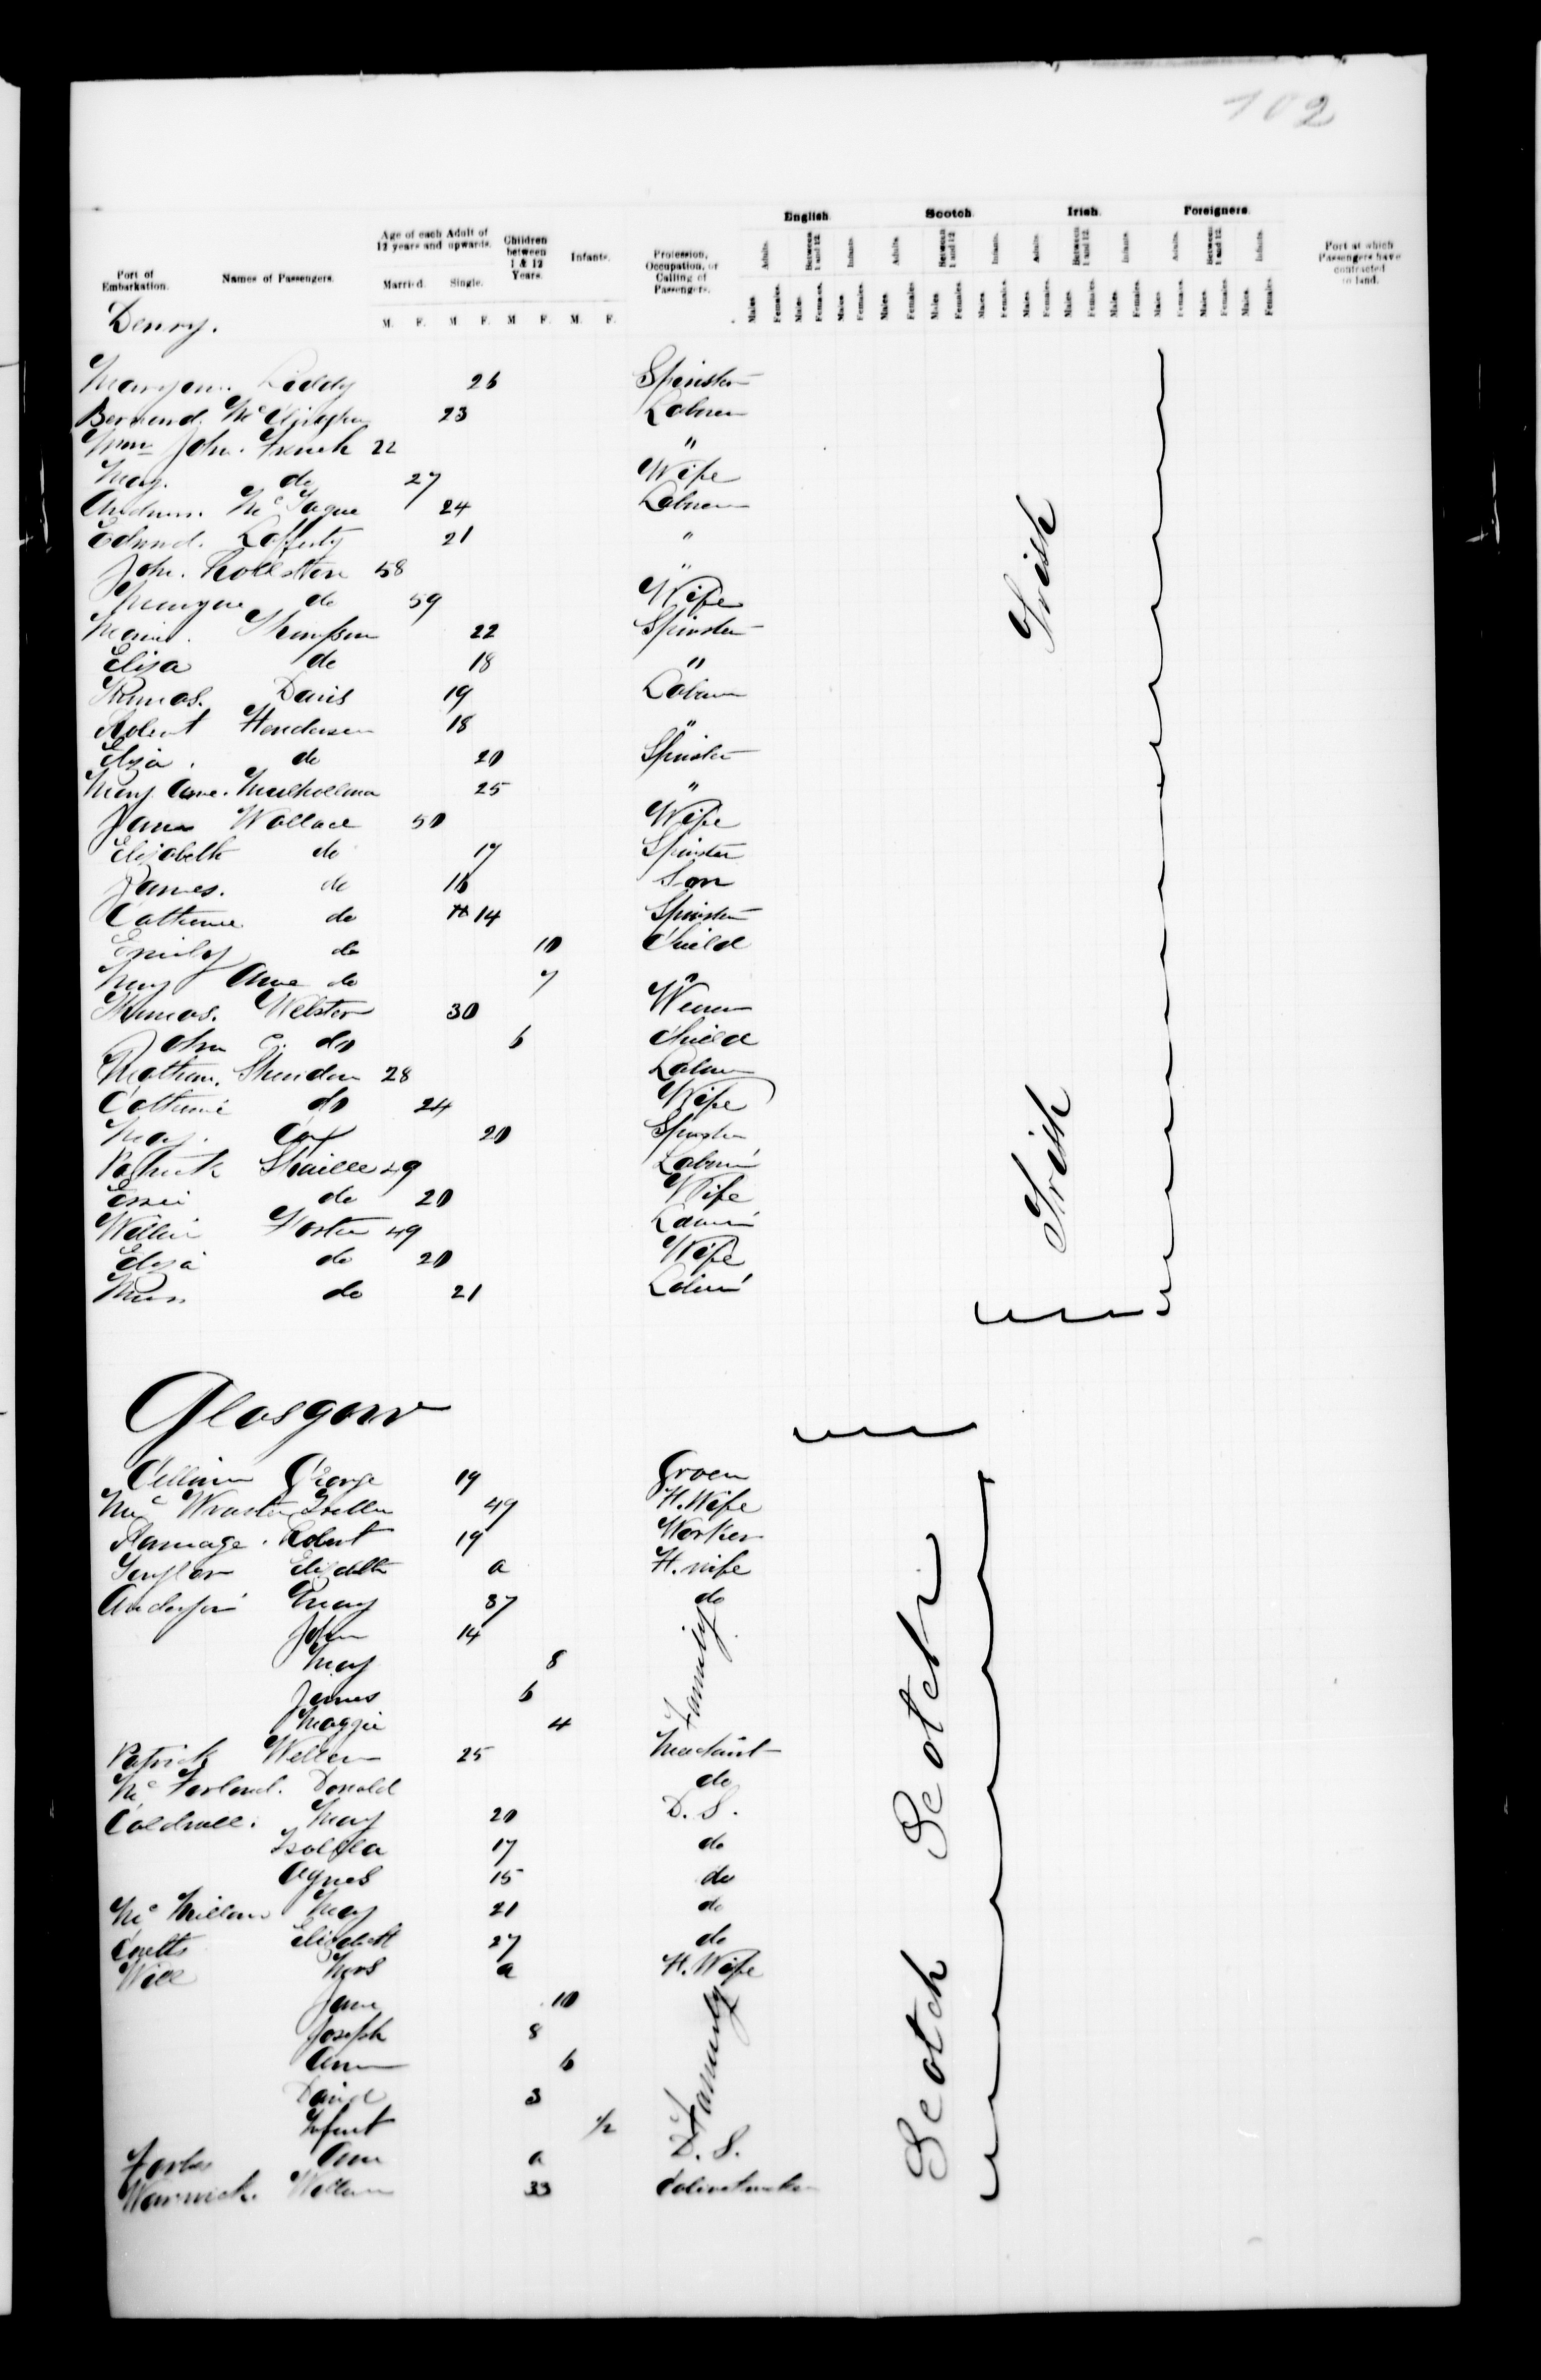 102
English. Scotch. Irish. Foreigners.
Port of Embarkation. Names of Passengers. Age of each Adult of 12 years and upwards. Children between 1 & 12 Years. Infants. Profession, Occupation, or Calling of Passengers. Adults. Between 1 and 12. Infants. Adults. Between 1 and 12. Infants. Adults. Between 1 and 12. Infants. Adults. Between 1 and 12. Infants. Port at which Passengers have contracted to land.
Married. Single.
M. F. M F. M F. M. F. Males. Females. Males. Females. Males. Females. Males. Females. Males. Females. Males. Females. Males. Females. Males. Females. Males. Females. Males. Females. Males. Females. Males. Females.
Derry.
Maryann. Liddy 26 Spinster
Bernard. 23 Labourer
Wm John. French 22 "
Mary. do 27 Wife
Andrew. McTague 24 Labourer
Edward. Lafferty 21 "
John. 58 "
do 59 Wife
Thompson 22 Spinster
Eliza do 18 "
Thomas. Davis 19 Labourer
Robert Henderson 18 "
Eliza. do 20 Spinster
Mary Anne. Mulholland 25 "
Jane Wallace 50 Wife
Elizabeth do 17 Spinster
James. do 16 Son
Catherine do 14 Spinster
Emily do 10 Child
Mary Anne do 7 "
Thomas. Webster 30
John C. do 6 Child
Sheridan 28 Labourer
Catherine do 24 Wife
Mary. 20 Spinster
Patrick 49 Labourer
Essie do 20 Wife
William Foster 49 Labourer
Eliza do 20 Wife
do 21 Labourer
Irish
Irish
Glasgow
George 19 Grocer
49 H. Wife
Ramage. Robert 19 Worker
Taylor Elizabeth a H. wife
Anderson Mary 37 do
John 14
Mary 8
James 6
Maggie 4
Family
Patrick William 25
McFarland. Donald do
Caldwell. Mary 20 D. S.
Isabella 17 do
Agnes 15 do
McMillan Mary 21 do
Coutts Elizabeth 27 do
Will Mrs a H. Wife
Jane 10
Joseph 8
Ann 6
David 3
Infant 1/2
Family
Forbes Ann a D. S.
Warwick. William 33 Cabinetmaker
Scotch
Scotch
Scotch